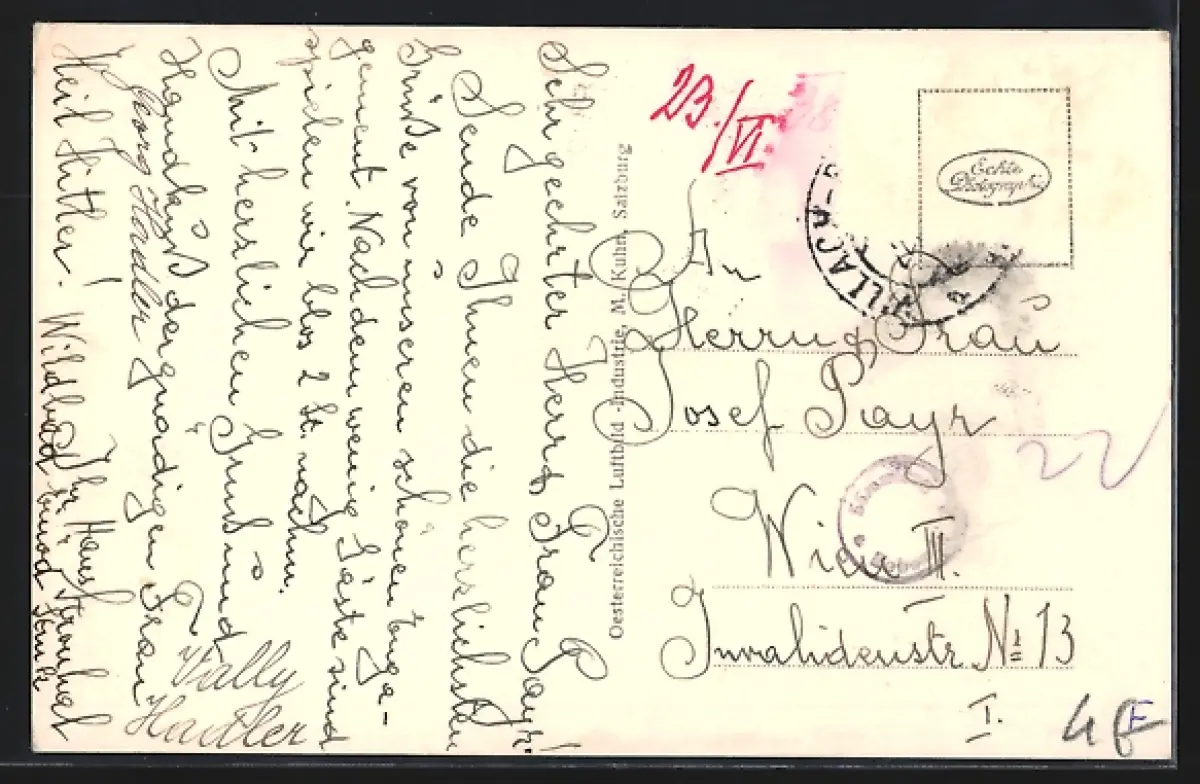 Sehr geehrter Herr & Frau Payr!
Sende Ihnen die herzlichsten
Grüße von unseren schönen Enga-
gement. Nachdem wenig Gäste sind
spielen wir blos 2 St. nachm.
Mit herzlichen Gruß und
Handkuß der gnädigen Frau
Heil Hitler! Ihr Hans
Georg Hardler
Vally
Hardler
Wildbad
Oesterreichische Luftbild-Industrie, M. Kuhn, Salzburg
23./VI.
Echte
Photographie
VILLACH
An
Herrn & Frau
Josef Payr
Wien III.
Invalidenstr. № 13
I.
4
F